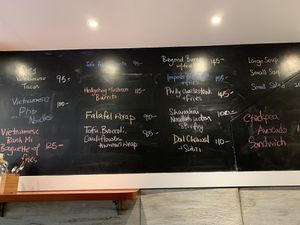 Vietnamese
Tacos 95-
Vietnamese
Pho
Noodles 100-
Vietnamese
Banh Mi
Baguette w/
fries 125-
Tofu 90-
Hedgehog Mushroom
Burrito 115-
Falafel Wrap 90-
Tofu, Broccoli,
Cauliflower
Hummus Wrap 95-
Beyond Burger
+ fries 145-
Philly Cheesesteak
+ Fries 145-
Shanghai
Noodles Udon
Stirfry 100-
Dal Chawal
+ Sabzi 110-
Large Soup
Small Soup
Small Salad
Chickpea
Avocado
Sandwich